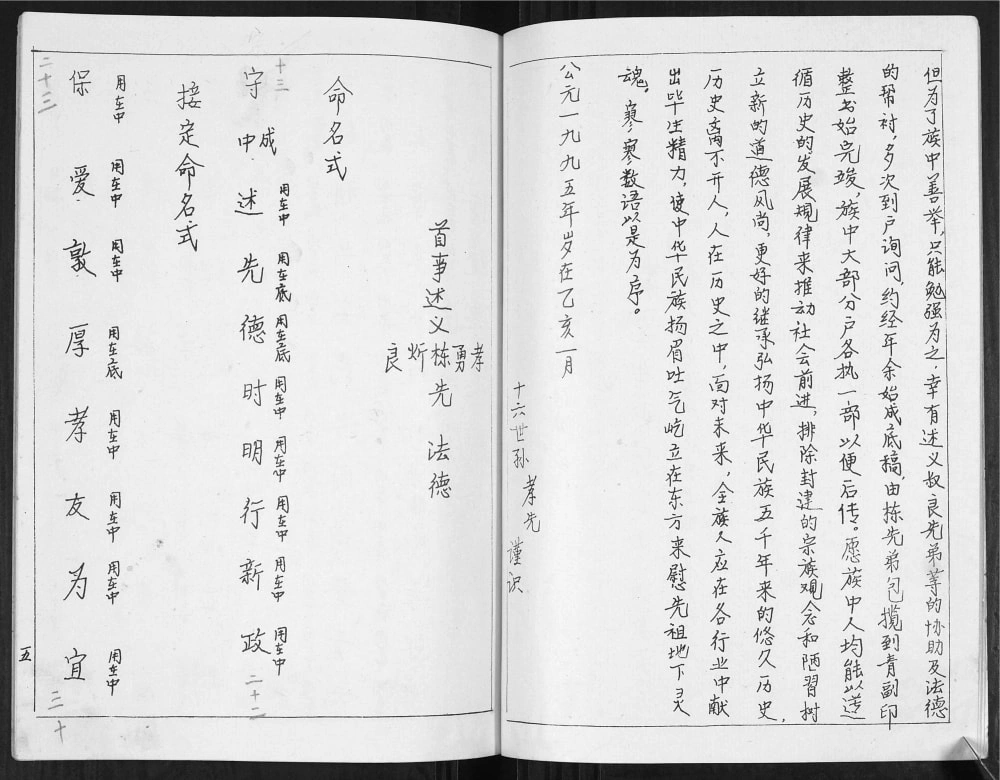 但为了族中善举，只能勉强为之，幸有述义叔良先弟等的协助及法德
的帮衬，多次到户询问，约经年余始成底稿，由栋先弟包揽到青副印
整书始完竣，族中大部分户各执一部以便后传。愿族中人均能以遵
循历史的发展规律来推动社会前进，排除封建的宗族观念和陋習树
立新的道德风尚，更好的继承弘扬中华民族五千年来的悠久历史，
历史离不开人，人在历史之中，面对未来，全族人应在各行业中献
出毕生精力，使中华民族扬眉吐气屹立在东方来慰先祖地下灵
魂，寥寥数语以是为序。
公元一九九五年岁在乙亥一月
十六世孙 孝先 谨识
首事述义
良炘栋勇孝
先 法德
命名式
十三
守 成 中 述 用在中 先 用在底 德 用在底 时 用在中 明 用在中 行 用在中 新 用在中 政 用在中
二十二
接定命名式
二十三
保 用在中 爱 用在中 敦 用在中 厚 用在底 孝 用在中 友 用在中 为 用在中 宜 用在中
三十
五